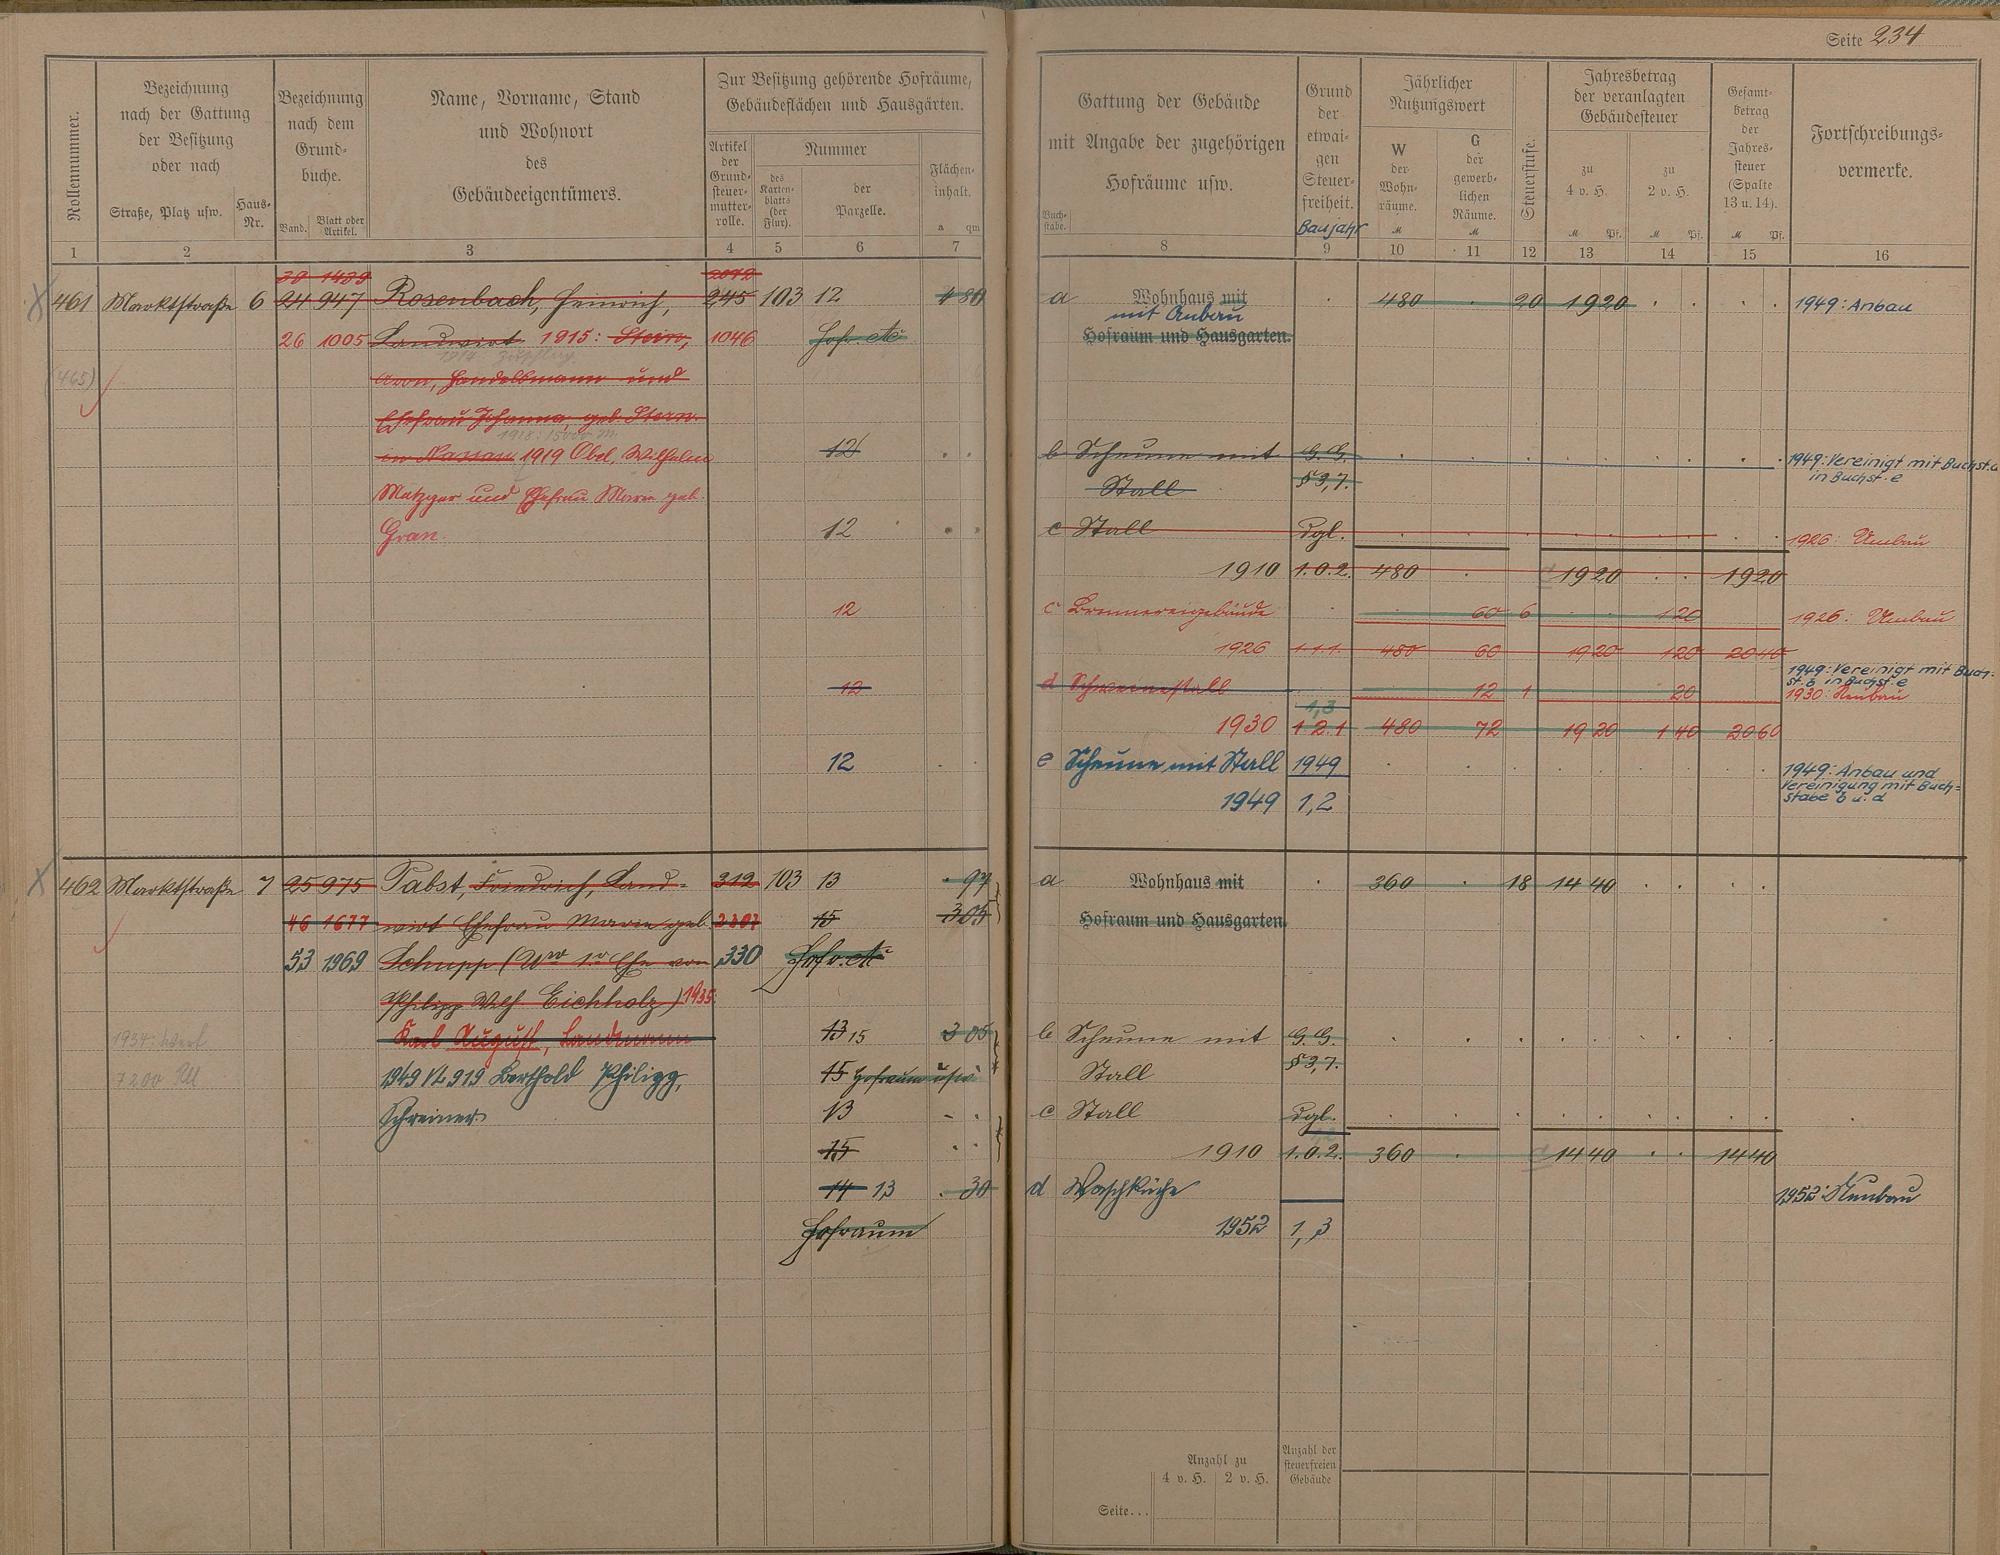 Seite 234
Rollennummer.
Bezeichnung
nach der Gattung
der Besitzung
oder nach
Straße, Platz usw.
Haus-
Nr.
Bezeichnung
nach dem
Grund-
buche.
Band.
Blatt oder
Artikel.
Name, Vorname, Stand
und Wohnort
des
Gebäudeeigentümers.
Zur Besitzung gehörende Hofräume,
Gebäudeflächen und Hausgärten.
Artikel
der
Grund-
steuer-
mutter-
rolle.
Nummer
des
Karten-
blatts
(der
Flur).
der
Parzelle.
Flächen-
inhalt.
a qm
1 2 3 4 5 6 7
30 1439 2092
461 Marktstraße 6 24 947 Rosenbach, Heinrich, 245 103 12 4 80
26 1005 Landwirt 1915: Stern, 1046 Hofr. etc
(465) Aron, Handelsmann und
Ehefrau Johanna, geb. Stern
in Nassau 1919 Obel, Wilhelm 12
Metzger und Ehefrau Marie geb.
Gran. 12
12
12
12
462 Marktstraße 7 25 975 Pabst, Friedrich, Land- 312 103 13 97
46 1677 wirt Ehefrau Marie geb. 15 3 05
53 1969 Schupp (Wwe 1r Ehe von 330 Hofr. etc
Philipp Wilh. Eichholz) 1935:
1934: Wert Karl August, Landmann 13 15 3 05
7200 RM 1949 Berthold Philipp, 15 Hofraum usw
Schreiner 13
15
14 13 30
Hofraum
Buch-
stabe.
Gattung der Gebäude
mit Angabe der zugehörigen
Hofräume usw.
Grund
der
etwai-
gen
Steuer-
freiheit.
Baujahr
Jährlicher
Nutzungswert
W
der
Wohn-
räume.
M
G
der
gewerb-
lichen
Räume.
M
Steuerstufe.
Jahresbetrag
der veranlagten
Gebäudesteuer
zu
4 v. H.
M Pf.
zu
2 v. H.
M Pf.
Gesamt-
betrag
der
Jahres-
steuer
(Spalte
13 u. 14).
M Pf.
Fortschreibungs-
vermerke.
8 9 10 11 12 13 14 15 16
a Wohnhaus mit 480 20 19 20 1949: Anbau
mit Anbau
Hofraum und Hausgarten.
b Scheune mit G.G. 1949: Vereinigt mit Buchst. d
Stall § 3,7. in Buchst. e
c Stall Dgl. 1926: Umbau
1910 1.0.2. 480 19 20 19 20
c Brennereigebäude 60 6 1 20 1926: Umbau
1926 1.1.1. 480 60 19 20 1 20 20 40
1949: Vereinigt mit Buch-
st. b in Buchst. e
d Schweinestall 12 1 20 1930: Neubau
1,3
1930 1.2.1 480 72 19 20 1 40 20 60
e Scheune mit Stall 1949 1949: Anbau und
Vereinigung mit Buch-
1949 1,2 stabe b u. d
a Wohnhaus mit 360 18 14 40
Hofraum und Hausgarten.
b Scheune mit G.G.
Stall § 3,7.
c Stall Dgl.
1910 1.0.2. 360 14 40 14 40
d Waschküche 1952: Neubau
1952 1,3
Anzahl zu
4 v. H. 2 v. H.
Anzahl der
steuerfreien
Gebäude
Seite...